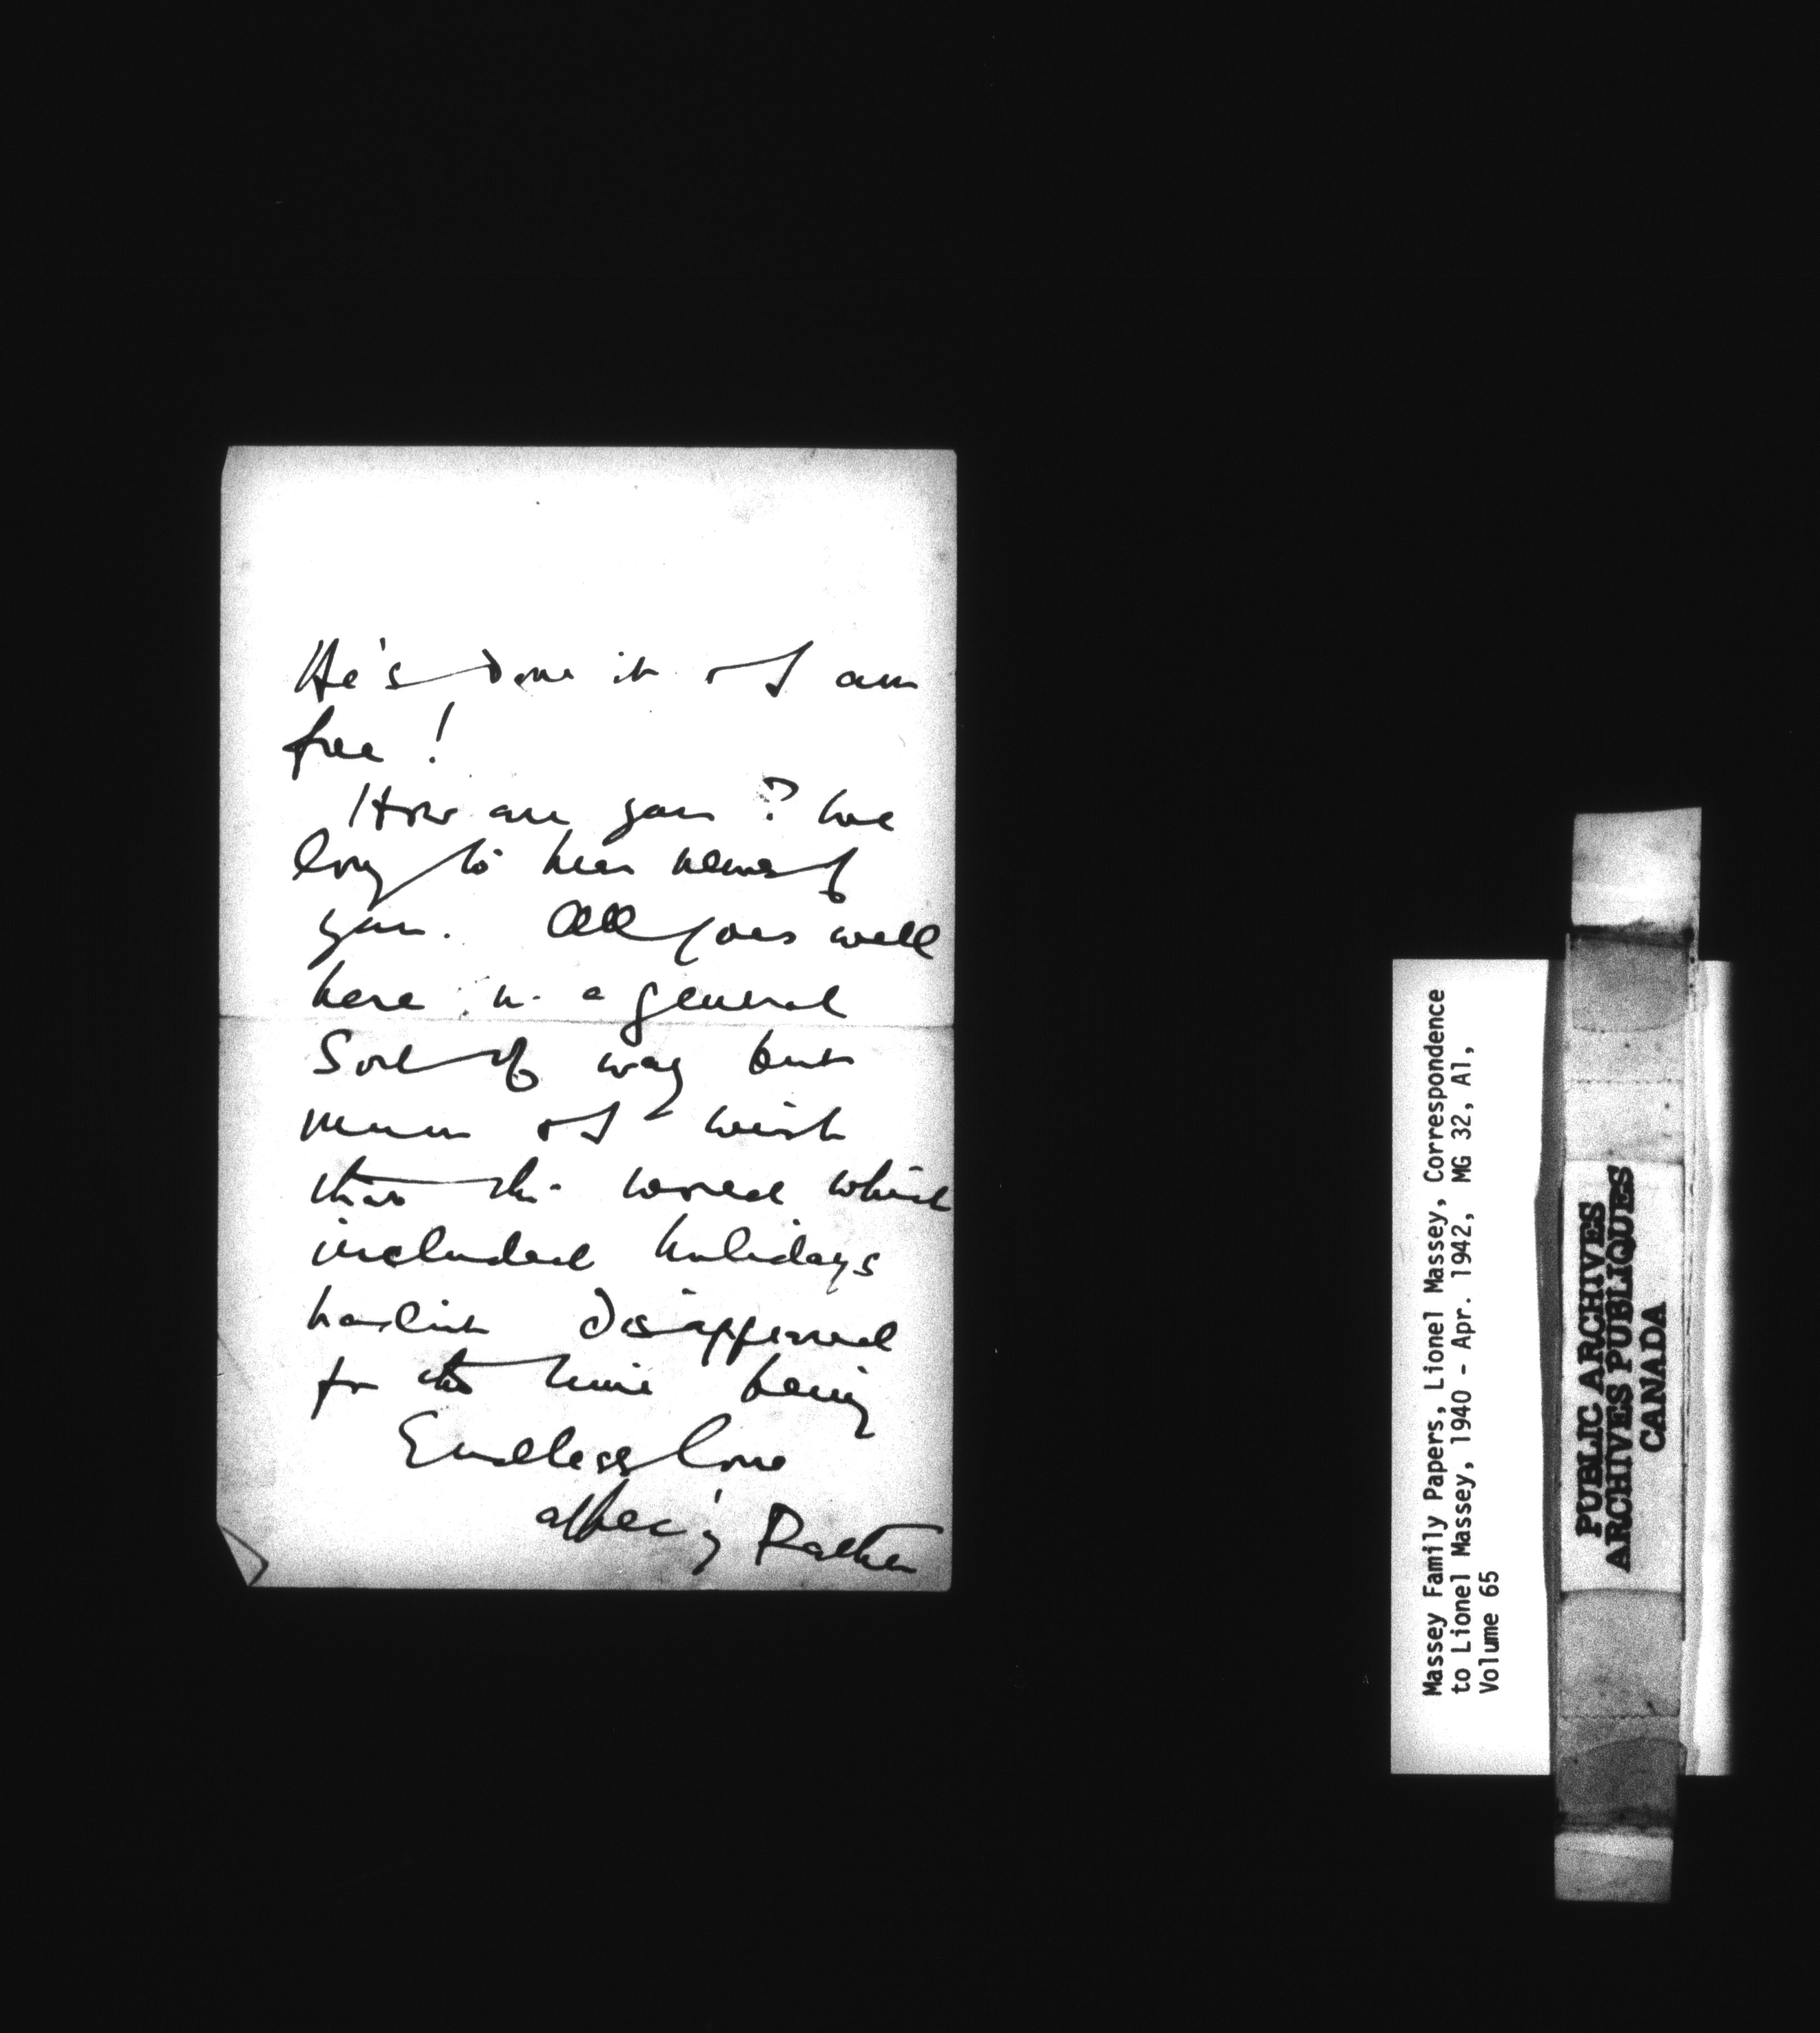 He's done it & I am
free!
How are you? We
long to hear news of
you. All goes well
here in a general
Sort of way but
mum & I wish
that the world which
included holidays
hadn't disappeared
for the time being
Endless love
affec'ly Father
Massey Family Papers, Lionel Massey, Correspondence
to Lionel Massey, 1940 - Apr. 1942, MG 32, A1,
Volume 65
PUBLIC ARCHIVES
ARCHIVES PUBLIQUES
CANADA